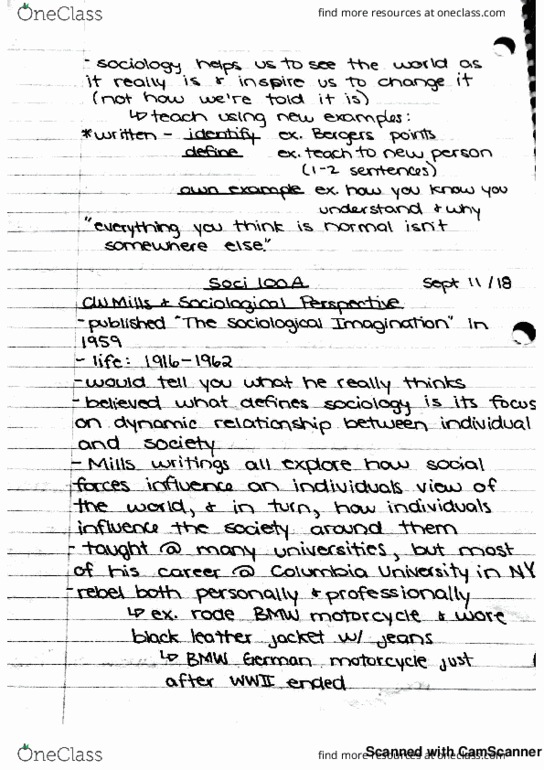 OneClass
find more resources at oneclass.com
- sociology helps us to see the world as
it really is & inspire us to change it
(not how we're told it is)
↳ teach using new examples:
*written - identify ex. Bergers points
define ex. teach to new person
(1-2 sentences)
own example ex. how you know you
understand & why
"everything you think is normal isn't
somewhere else."
Soci 100A Sept 11/18
CW Mills & Sociological Perspective
- published "The Sociological Imagination" in
1959
- life: 1916-1962
- would tell you what he really thinks
- believed what defines sociology is its focus
on dynamic relationship between individual
and society
- Mills writings all explore how social
forces influence an individuals view of
the world, & in turn, how individuals
influence the society around them
- taught @ many universities, but most
of his career @ Columbia University in NY
- rebel both personally & professionally
↳ ex. rode BMW motorcycle & wore
black leather jacket w/ jeans
↳ BMW German motorcycle just
after WWII ended
OneClass
find more resources at oneclass.com
Scanned with CamScanner